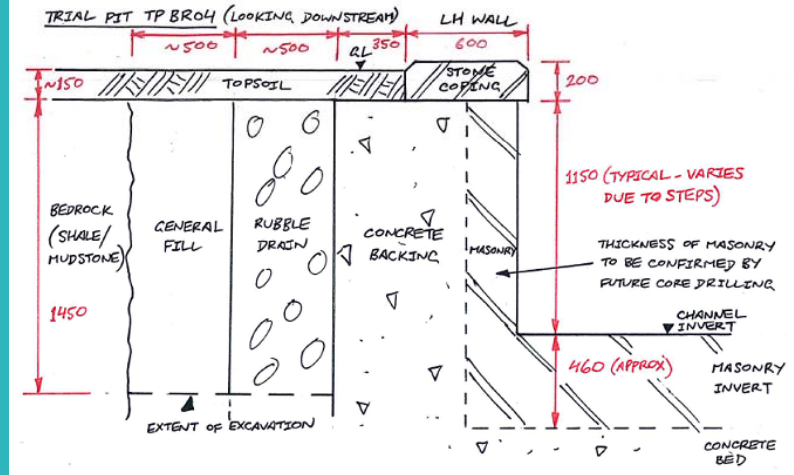 TRIAL PIT TP BR04 (LOOKING DOWNSTREAM)
LH WALL
~500
~500
GL
350
600
~150
TOPSOIL
STONE
COPING
200
BEDROCK
(SHALE/
MUDSTONE)
GENERAL
FILL
RUBBLE
DRAIN
CONCRETE
BACKING
MASONRY
1150 (TYPICAL - VARIES
DUE TO STEPS)
THICKNESS OF MASONRY
TO BE CONFIRMED BY
FUTURE CORE DRILLING
1450
CHANNEL
INVERT
460 (APPROX)
MASONRY
INVERT
EXTENT OF EXCAVATION
CONCRETE
BED